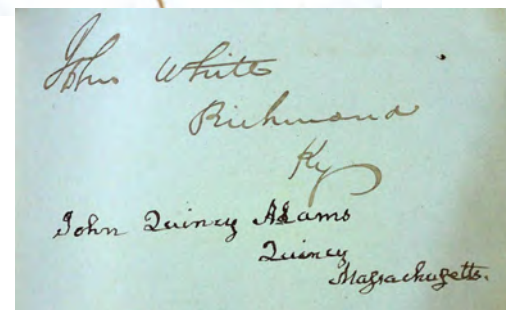 John White
Richmond
Ky
John Quincy Adams
Quincy
Massachusetts.